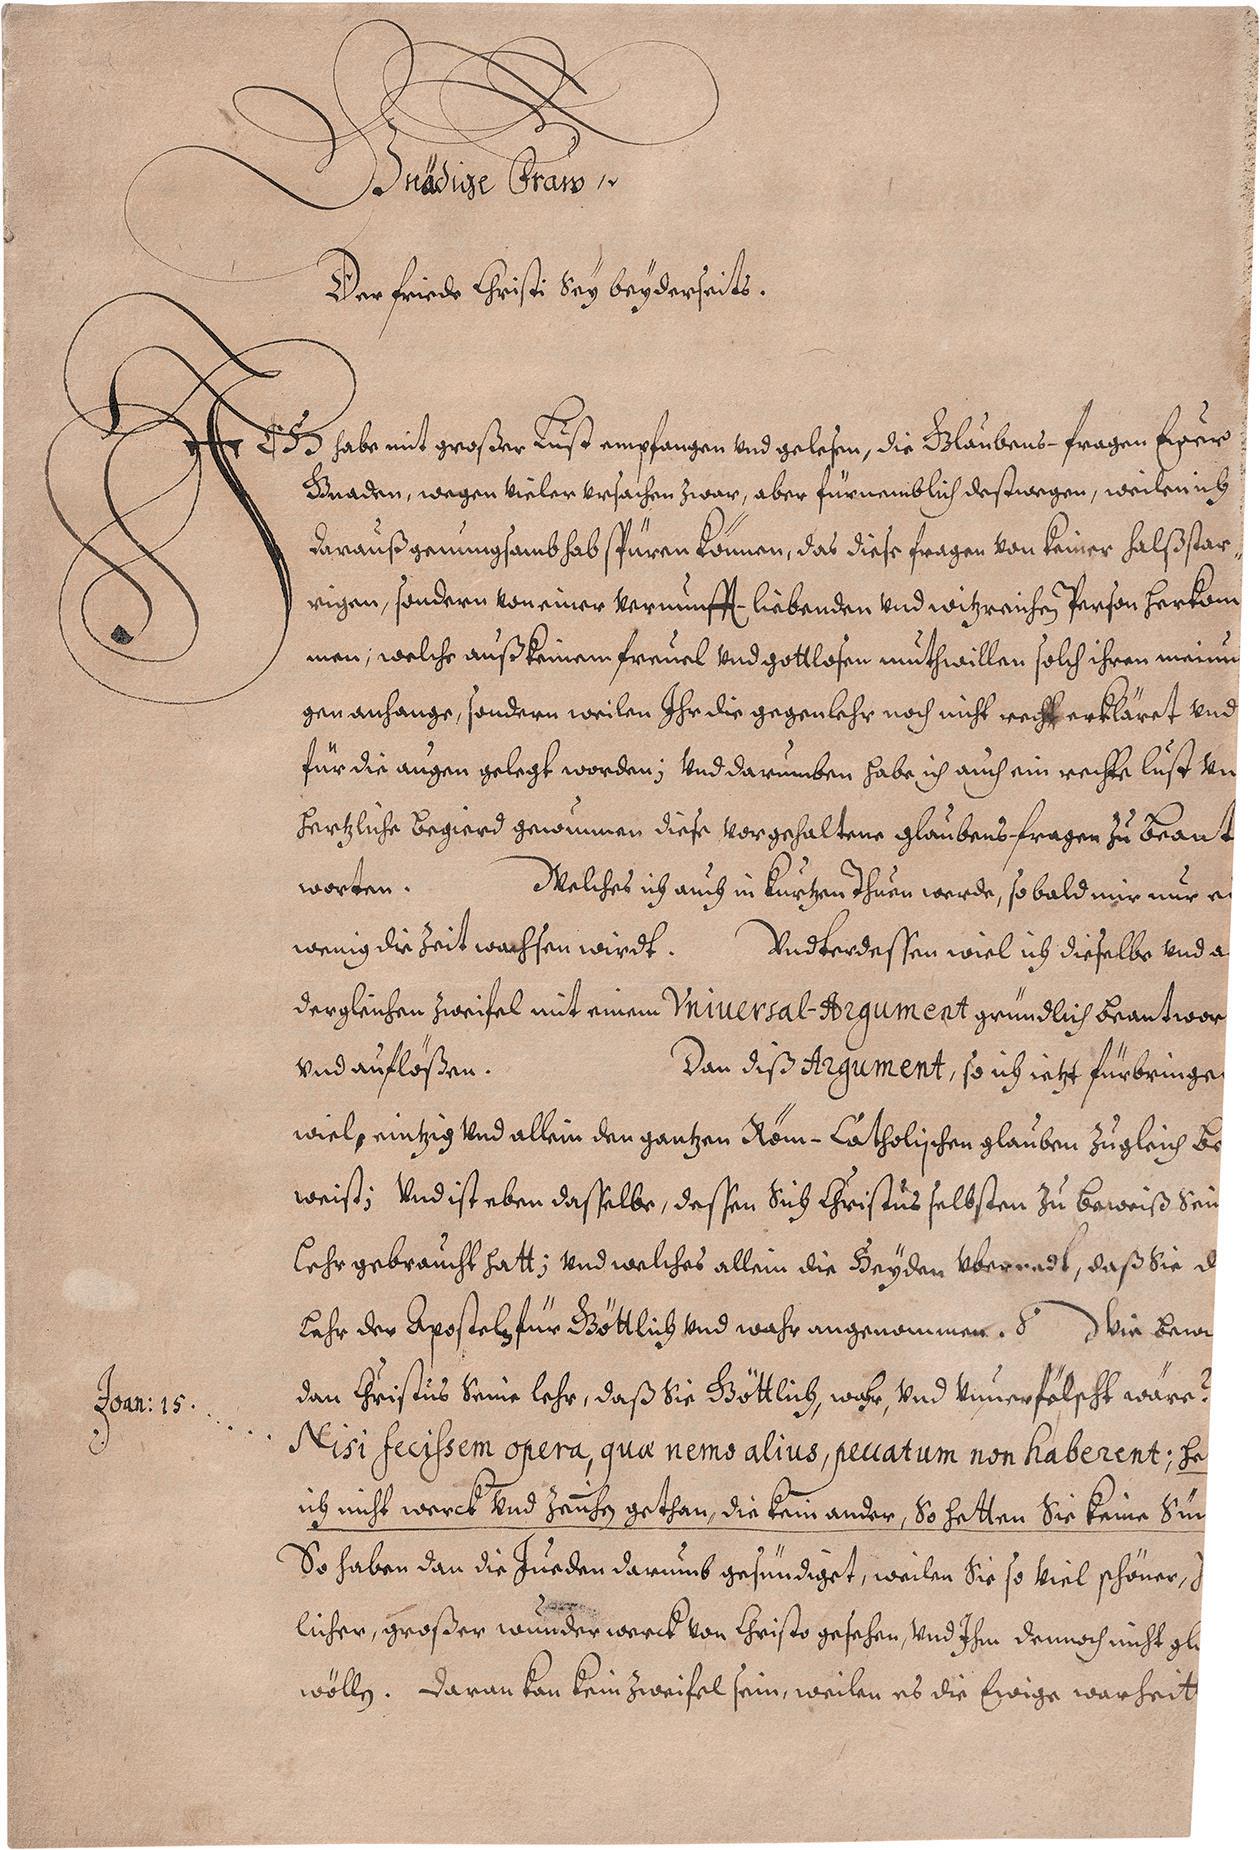 Gnädige Fraw
Der friede Christi Sey beyderseits.
ICH habe mit großer Lust empfangen vnd gelesen, die Glaubens-fragen Ewer
Gnaden, wegen vieler vrsachen zwar, aber fürnemblich destwegen, weilen ich
darauß genungsamb hab spüren können, das diese fragen von keiner halßstar-
rigen, sondern von einer vernunfft-liebenden vnd witzreichen Person herkom
men; welche auß keinem freuel vnd gottlosen muthwillen solch ihren meinun
gen anhange, sondern weilen Ihr die gegenlehr noch nicht recht erkläret vnd
für die augen gelegt worden; vnd darumben habe ich auch ein rechte lust vn
hertzliche begierd genummen diese vorgehaltene glaubens-fragen zu beant
worten. Welches ich auch in kurtzen Thuen werde, so bald mir nur ei
wenig die Zeit wachsen wirdt. Vndterdessen wiel ich dieselbe vnd a
dergleichen zweifel mit einem Vniuersal-Argument gründlich beantwor
vnd auflößen. Dan diß Argument, so ich ietzt fürbringe
wiel, eintzig vnd allein den gantzen Röm-Catholischen glauben zugleich be
weist; vnd ist eben dasselbe, dessen Sich Christus selbsten zu beweiß Sein
Lehr gebraucht hatt; vnd welches allein die Heyden vberredt, daß Sie d
Lehr der Apostel für Göttlich vnd wahr angenommen. Wie bewe
dan Christus Seine lehr, daß Sie Göttlich, wahr, vnd vnuerfälscht wäre?
Joan: 15.
Nisi fecissem opera, quæ nemo alius, peccatum non haberent; he
ich nicht werck vnd Zeichen gethan, die kein ander, So hetten Sie keine Sün
So haben dan die Jueden darumb gesündiget, weilen Sie so viel schöner,
licher, großer wunderwerck von Christo gesehen, vnd Ihm dennoch nicht gl
wöllen. Daran kan kein zweifel sein, weilen es die Ewige warheit